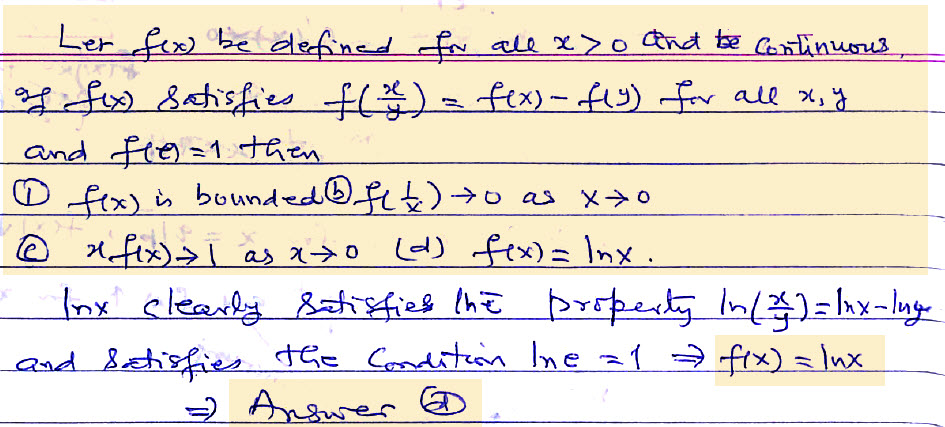 Let f(x) be defined for all x > 0 and be continuous.
If f(x) satisfies f(x/y) = f(x) - f(y) for all x, y
and f(e) = 1 then
① f(x) is bounded ⓑ f(1/x) → 0 as x → 0
ⓒ x f(x) → 1 as x → 0 (d) f(x) = lnx.
lnx clearly satisfies the property ln(x/y) = lnx - lny
and satisfies the Condition lne = 1 ⇒ f(x) = lnx
⇒ Answer ⓓ